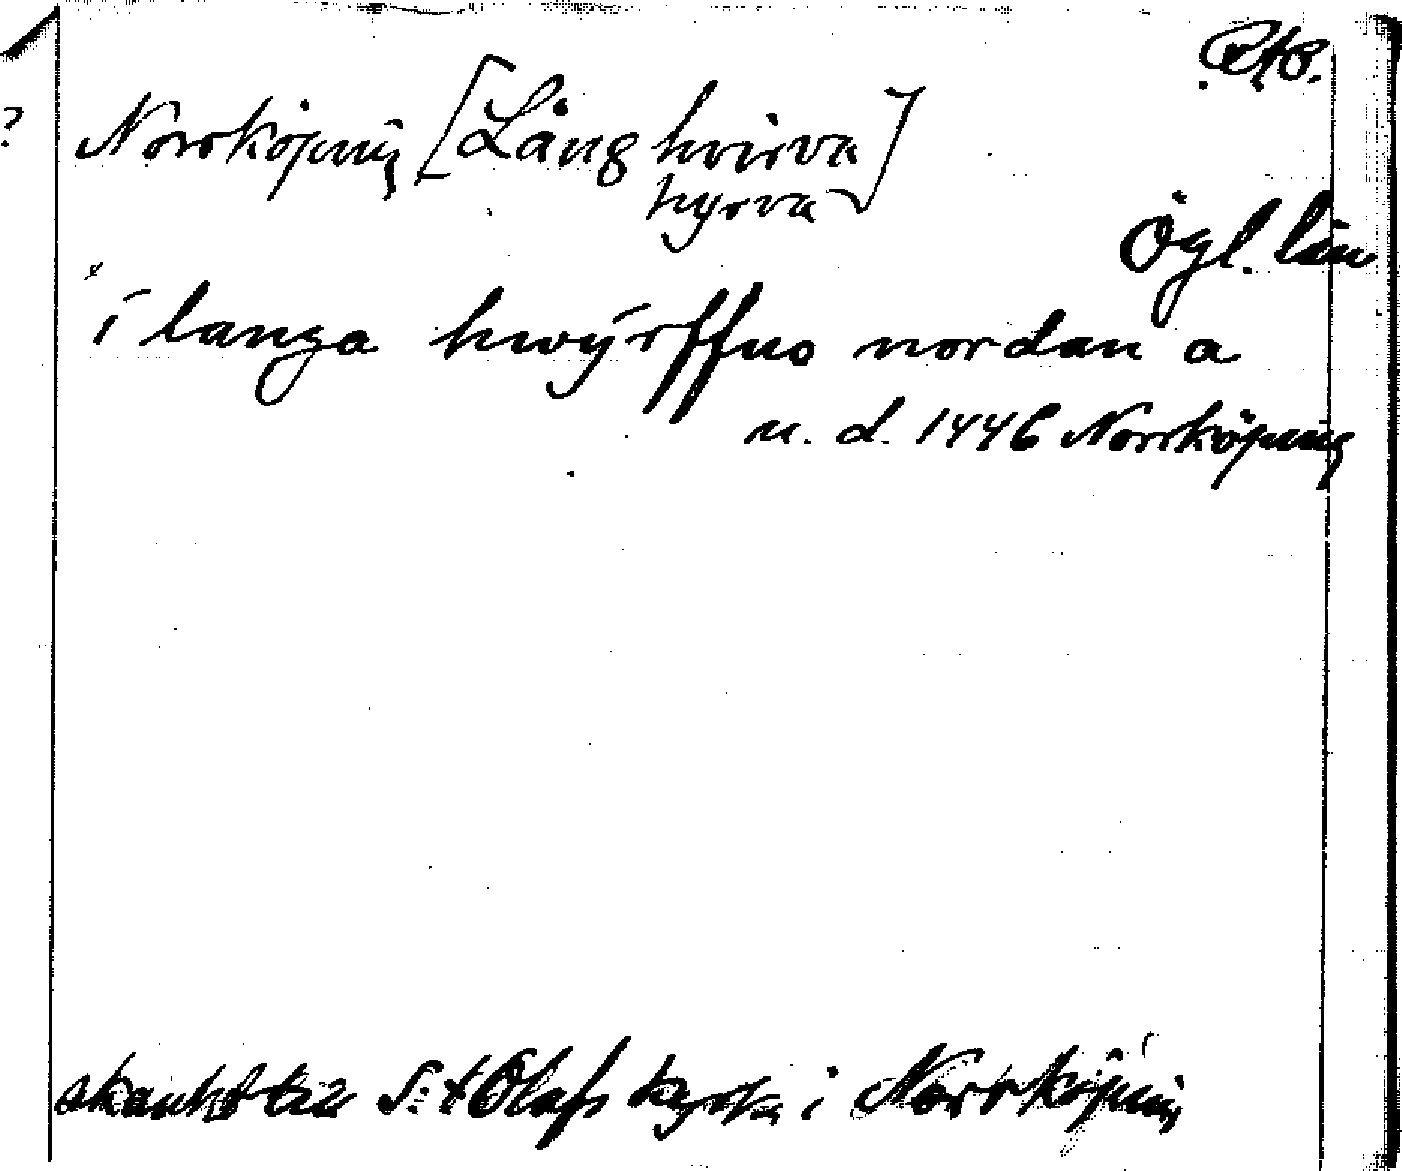 RAP.
? Norrköping [Lång hvirva]
hyrva
Ögl. län
x
i langa hwyrffuo nordan a
u. d. 1446 Norrköping
skänkt till S:t Olafs kyrka i Norrköping